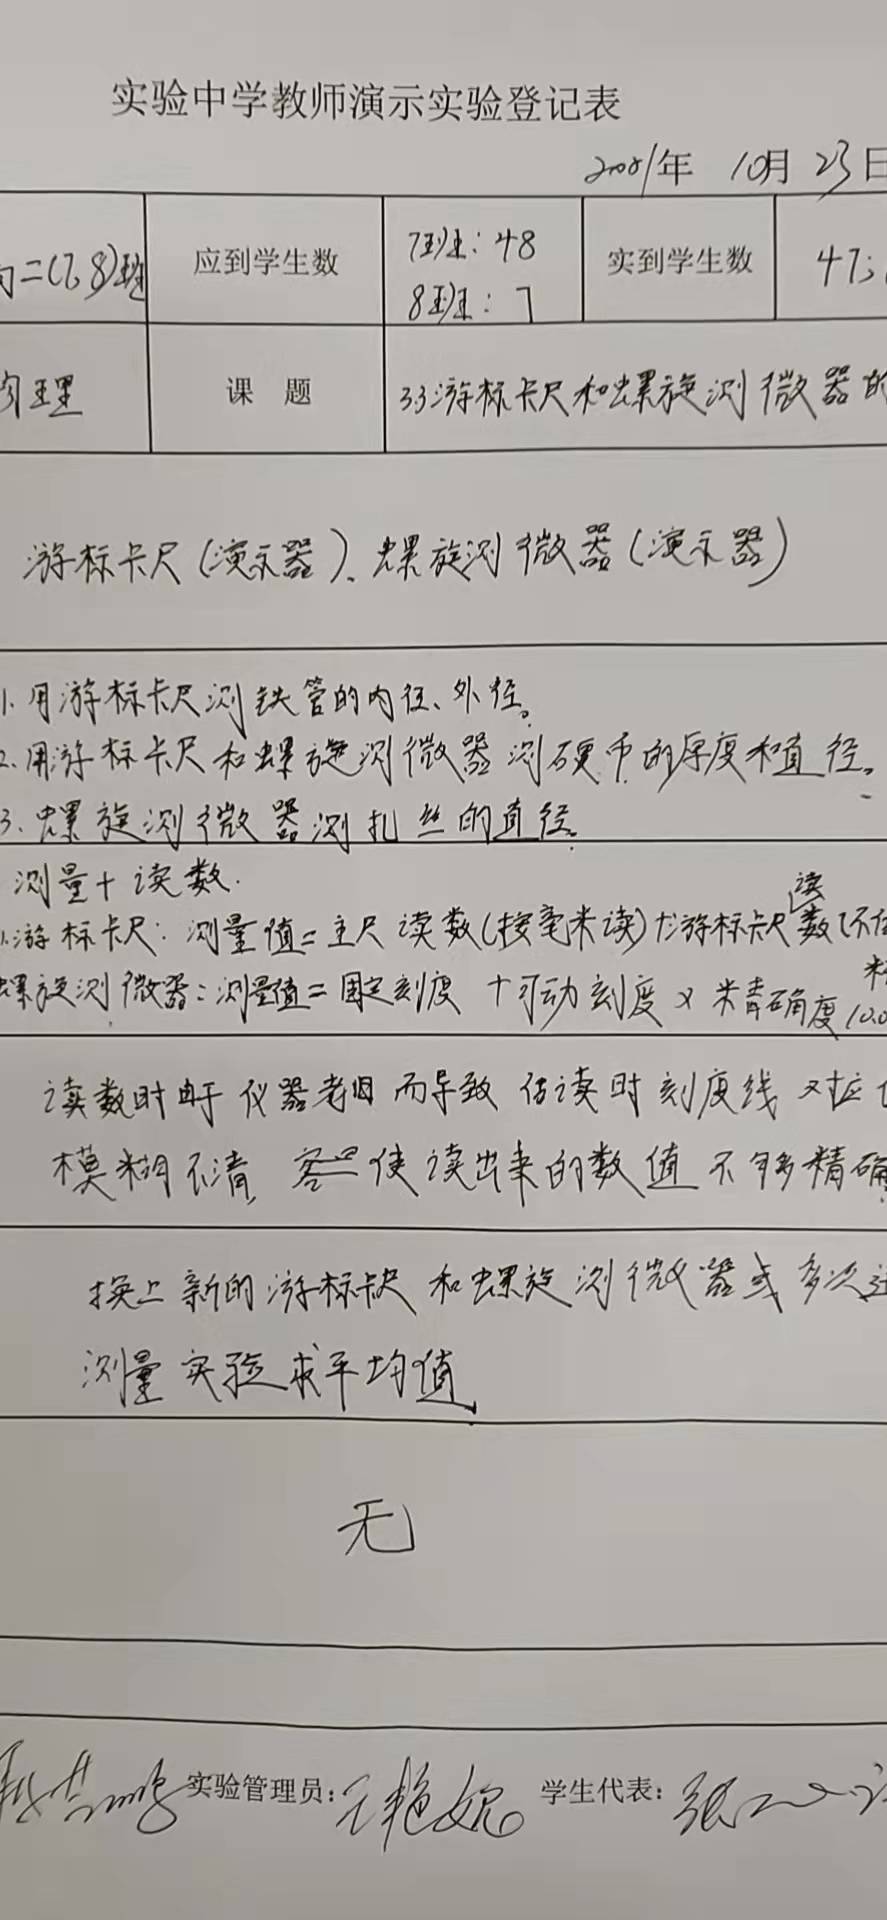 实验中学教师演示实验登记表
年 10月 23日
二(7、8)班 应到学生数 7班:48 8班:7 实到学生数 47;
理 课 题 3.3游标卡尺和螺旋测微器的
游标卡尺(演示器)、螺旋测微器(演示器)
1.用游标卡尺测铁管的内径、外径。
2.用游标卡尺和螺旋测微器测硬币的厚度和直径。
3.螺旋测微器测扎丝的直径。
测量+读数.
1.游标卡尺:测量值=主尺读数(按毫米读)+游标卡尺读数(不估
螺旋测微器:测量值=固定刻度+可动刻度×精确度(0.0
读数时由于仪器老旧而导致估读时刻度线对应
模糊不清,使读出来的数值不够精确
换上新的游标卡尺和螺旋测微器或多次
测量实验求平均值。
无
实验管理员:王艳妮 学生代表:张